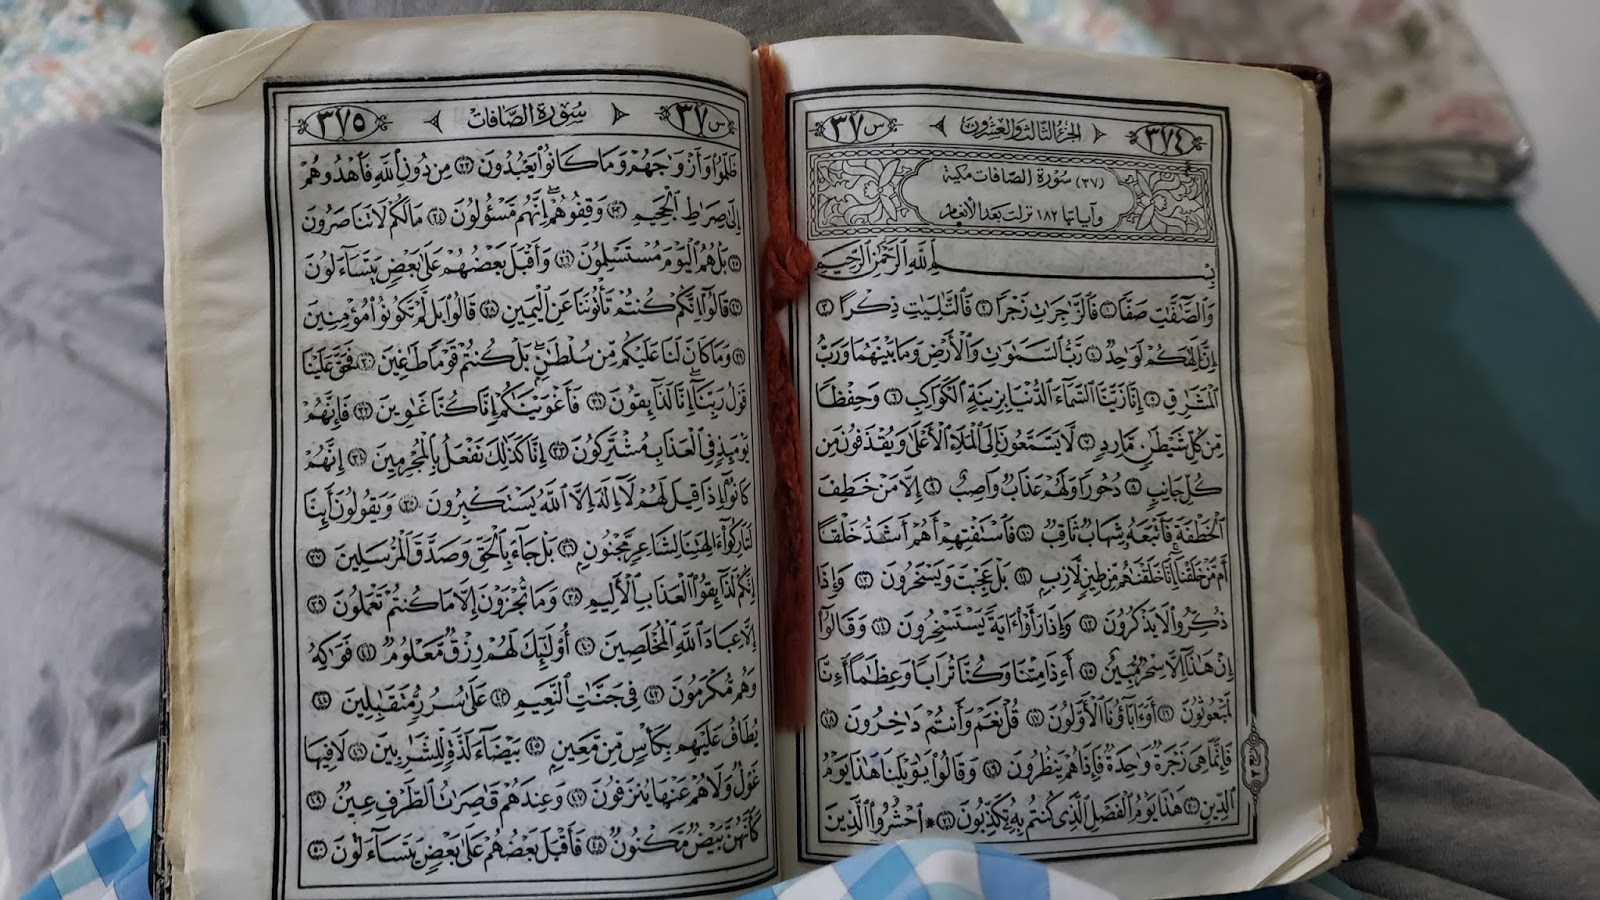 ٣٧٤ الجزء الثالث والعشرون س ٣٧
(٣٧) سُورَة الصَّافات مكيّة
وآياتها ١٨٢ نزلت بعد الأنعام
بِسْمِ ٱللَّهِ ٱلرَّحْمَٰنِ ٱلرَّحِيمِ
وَٱلصَّٰٓفَّٰتِ صَفًّا ١ فَٱلزَّٰجِرَٰتِ زَجْرًا ٢ فَٱلتَّٰلِيَٰتِ ذِكْرًا ٣
إِنَّ إِلَٰهَكُمْ لَوَٰحِدٌ ٤ رَّبُّ ٱلسَّمَٰوَٰتِ وَٱلْأَرْضِ وَمَا بَيْنَهُمَا وَرَبُّ
ٱلْمَشَٰرِقِ ٥ إِنَّا زَيَّنَّا ٱلسَّمَآءَ ٱلدُّنْيَا بِزِينَةٍ ٱلْكَوَاكِبِ ٦ وَحِفْظًا
مِّن كُلِّ شَيْطَٰنٍ مَّارِدٍ ٧ لَّا يَسَّمَّعُونَ إِلَى ٱلْمَلَإِ ٱلْأَعْلَىٰ وَيُقْذَفُونَ مِن
كُلِّ جَانِبٍ ٨ دُحُورًا وَلَهُمْ عَذَابٌ وَاصِبٌ ٩ إِلَّا مَنْ خَطِفَ
ٱلْخَطْفَةَ فَأَتْبَعَهُۥ شِهَابٌ ثَاقِبٌ ١٠ فَٱسْتَفْتِهِمْ أَهُمْ أَشَدُّ خَلْقًا
أَم مَّنْ خَلَقْنَآ إِنَّا خَلَقْنَٰهُم مِّن طِينٍ لَّازِبٍ ١١ بَلْ عَجِبْتَ وَيَسْخَرُونَ ١٢ وَإِذَا
ذُكِّرُوا۟ لَا يَذْكُرُونَ ١٣ وَإِذَا رَأَوْا۟ ءَايَةً يَسْتَسْخِرُونَ ١٤ وَقَالُوٓا۟
إِنْ هَٰذَآ إِلَّا سِحْرٌ مُّبِينٌ ١٥ أَءِذَا مِتْنَا وَكُنَّا تُرَابًا وَعِظَٰمًا أَءِنَّا
لَمَبْعُوثُونَ ١٦ أَوَءَابَآؤُنَا ٱلْأَوَّلُونَ ١٧ قُلْ نَعَمْ وَأَنتُمْ دَٰخِرُونَ ١٨
فَإِنَّمَا هِىَ زَجْرَةٌ وَٰحِدَةٌ فَإِذَا هُمْ يَنظُرُونَ ١٩ وَقَالُوا۟ يَٰوَيْلَنَا هَٰذَا يَوْمُ
ٱلدِّينِ ٢٠ هَٰذَا يَوْمُ ٱلْفَصْلِ ٱلَّذِى كُنتُم بِهِۦ تُكَذِّبُونَ ٢١ * ٱحْشُرُوا۟ ٱلَّذِينَ
س ٣٧ سُورَة الصَّافات ٣٧٥
ظَلَمُوا۟ وَأَزْوَٰجَهُمْ وَمَا كَانُوا۟ يَعْبُدُونَ ٢٢ مِن دُونِ ٱللَّهِ فَٱهْدُوهُمْ
إِلَىٰ صِرَٰطِ ٱلْجَحِيمِ ٢٣ وَقِفُوهُمْ إِنَّهُم مَّسْـُٔولُونَ ٢٤ مَا لَكُمْ لَا تَنَاصَرُونَ
٢٥ بَلْ هُمُ ٱلْيَوْمَ مُسْتَسْلِمُونَ ٢٦ وَأَقْبَلَ بَعْضُهُمْ عَلَىٰ بَعْضٍ يَتَسَآءَلُونَ
٢٧ قَالُوٓا۟ إِنَّكُمْ كُنتُمْ تَأْتُونَنَا عَنِ ٱلْيَمِينِ ٢٨ قَالُوا۟ بَل لَّمْ تَكُونُوا۟ مُؤْمِنِينَ
٢٩ وَمَا كَانَ لَنَا عَلَيْكُم مِّن سُلْطَٰنٍ بَلْ كُنتُمْ قَوْمًا طَٰغِينَ ٣٠ فَحَقَّ عَلَيْنَا
قَوْلُ رَبِّنَآ إِنَّا لَذَآئِقُونَ ٣١ فَأَغْوَيْنَٰكُمْ إِنَّا كُنَّا غَٰوِينَ ٣٢ فَإِنَّهُمْ
يَوْمَئِذٍ فِى ٱلْعَذَابِ مُشْتَرِكُونَ ٣٣ إِنَّا كَذَٰلِكَ نَفْعَلُ بِٱلْمُجْرِمِينَ ٣٤ إِنَّهُمْ
كَانُوٓا۟ إِذَا قِيلَ لَهُمْ لَآ إِلَٰهَ إِلَّا ٱللَّهُ يَسْتَكْبِرُونَ ٣٥ وَيَقُولُونَ أَئِنَّا
لَتَارِكُوٓا۟ ءَالِهَتِنَا لِشَاعِرٍ مَّجْنُونٍ ٣٦ بَلْ جَآءَ بِٱلْحَقِّ وَصَدَّقَ ٱلْمُرْسَلِينَ ٣٧
إِنَّكُمْ لَذَآئِقُوا۟ ٱلْعَذَابِ ٱلْأَلِيمِ ٣٨ وَمَا تُجْزَوْنَ إِلَّا مَا كُنتُمْ تَعْمَلُونَ ٣٩
إِلَّا عِبَادَ ٱللَّهِ ٱلْمُخْلَصِينَ ٤٠ أُو۟لَٰٓئِكَ لَهُمْ رِزْقٌ مَّعْلُومٌ ٤١ فَوَٰكِهُ
وَهُم مُّكْرَمُونَ ٤٢ فِى جَنَّٰتِ ٱلنَّعِيمِ ٤٣ عَلَىٰ سُرُرٍ مُّتَقَٰبِلِينَ ٤٤
يُطَافُ عَلَيْهِم بِكَأْسٍ مِّن مَّعِينٍ ٤٥ بَيْضَآءَ لَذَّةٍ لِّلشَّٰرِبِينَ ٤٦ لَا فِيهَا
غَوْلٌ وَلَا هُمْ عَنْهَا يُنزَفُونَ ٤٧ وَعِندَهُمْ قَٰصِرَٰتُ ٱلطَّرْفِ عِينٌ ٤٨
كَأَنَّهُنَّ بَيْضٌ مَّكْنُونٌ ٤٩ فَأَقْبَلَ بَعْضُهُمْ عَلَىٰ بَعْضٍ يَتَسَآءَلُونَ ٥٠